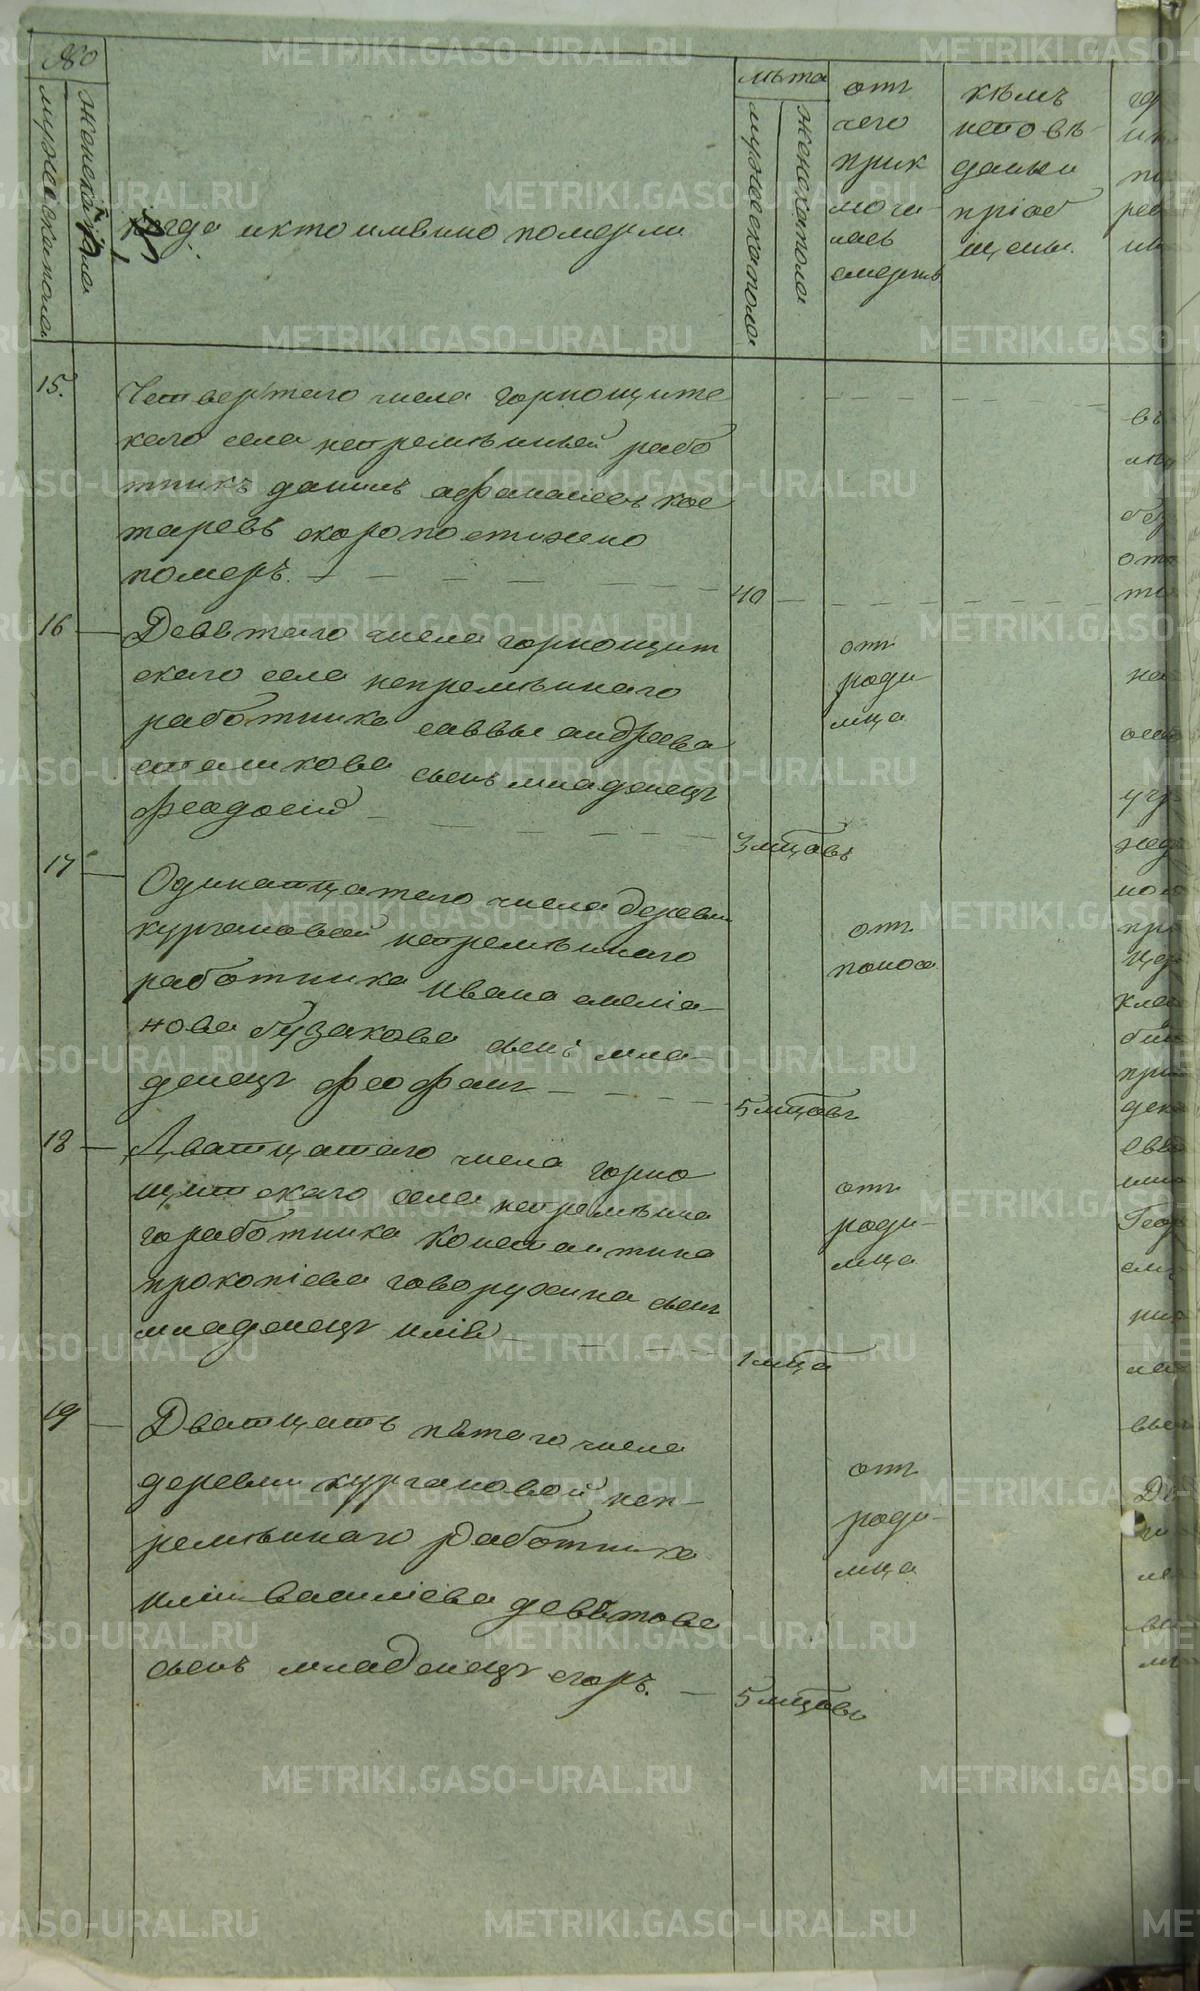 №
мужеска пола
женска пола
когда и кто имѣнно померли
мужеска пола
женска пола
лѣта
отъ
чего
прик
лючи
лась
смерть
кѣмъ
исповѣ
даныи
пріоб
щены.
15.
Четвертаго числа Горнощитс
каго села непремѣнный рабо
тникъ данилъ афанасіевъ кос
таревъ скоропостижно
померъ.
40
16
Девятаго числа горнощит
скаго села непремѣннаго
работника саввы андреева
сталикова сынъ младенецъ
феодосій
3 мцовъ
отъ
роди
мца
17
Одинатцатаго числа деревни
кургановой непремѣннаго
работника Ивана емеліа
нова бузакова сынъ мла
денецъ феофанъ
5 мцовъ
отъ
поноса
18
Дватцатаго числа горно
щитскаго села непремѣнна
го работника Константина
прокопіева говорухина сынъ
младенецъ илія
1 мца
отъ
роди
мца
19
Дватцать пятаго числа
деревни кургановой неп
ремѣннаго работника
иліи василіева девятова
сынъ младенецъ егоръ.
5 мцовъ
отъ
роди
мца
METRIKI.GASO-URAL.RU